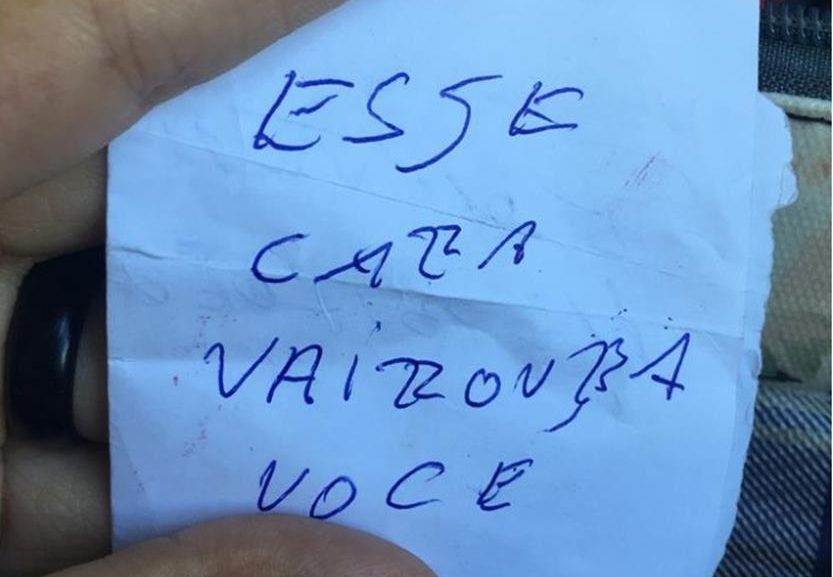 ESSE
CARA
VAI ROUBA
VOCE